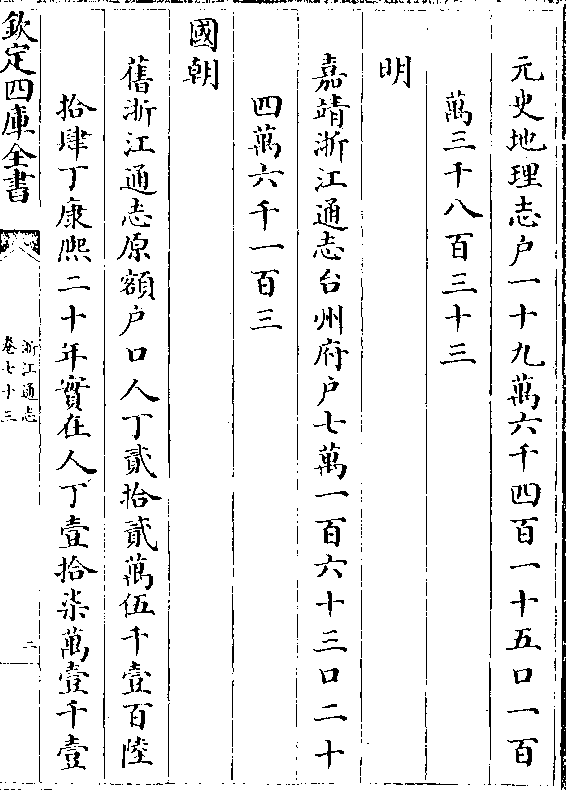 元史地理志户一十九萬六千四百一十五口一百
萬三千八百三十三
明
嘉靖浙江通志台州府户七萬一百六十三口二十
四萬六千一百三
國朝
舊浙江通志原額户口人丁貳拾貳萬伍千壹百陸
拾肆丁康熙二十年實在人丁壹拾柒萬壹千壹
欽定四庫全書
浙江通志
卷七十三
二